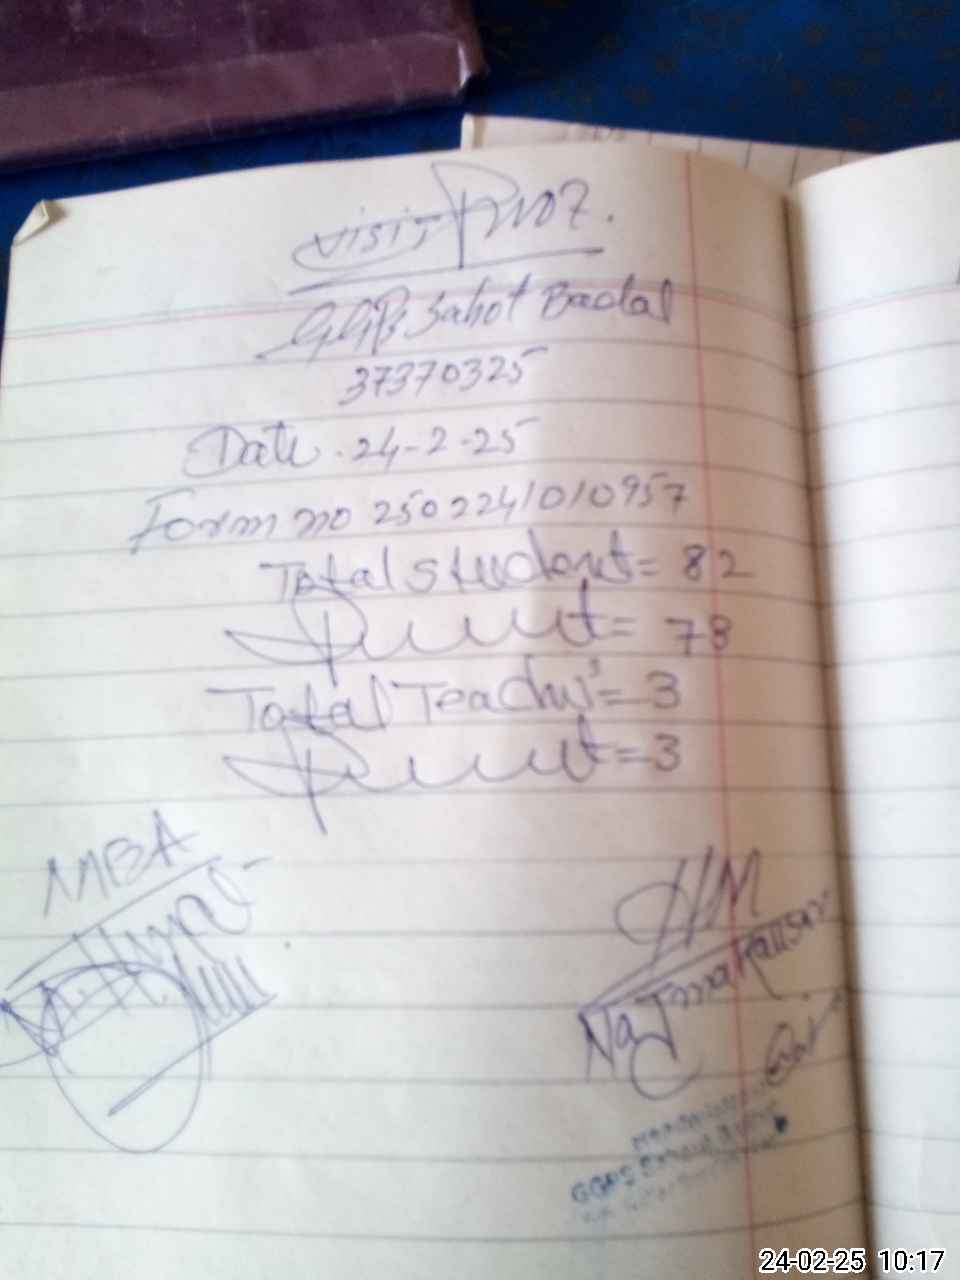 Visit Proof.
GGPS Sahot Badal
37370325
Date. 24-2-25
Form no 2502241010957
Total student = 82
Present = 78
Total Teacher's = 3
Present = 3
MBA
HM
Najma Kausar
GGPS
24-02-25 10:17